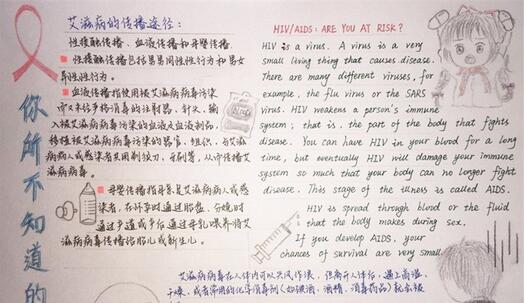 艾滋病的传播途径:
性接触传播、血液传播和母婴传播.
性接触传播包括男男同性性行为和男女
异性性行为。
血液传播指使用被艾滋病病毒污染
而又未经严格消毒的注射器、针头,输
入被艾滋病病毒污染的血液及血液制品,
移植被艾滋病病毒污染的器官、组织,与艾滋
病病人或感染者共用剃须刀、牙刷等,从而传播艾
滋病病毒。
母婴传播指母亲是艾滋病病人或感
染者,在怀孕时通过胎盘、分娩时
通过产道或产后通过母乳喂养将艾
滋病病毒传播给胎儿或新生儿。
你所不知道的
HIV/AIDS: ARE YOU AT RISK?
HIV is a virus. A virus is a very
small living thing that causes disease.
There are many different viruses, for
example, the flu virus or the SARS
virus. HIV weakens a person's immune
system; that is, the part of the body that fights
disease. You can have HIV in your blood for a long
time, but eventually HIV will damage your immune
system so much that your body can no longer fight
disease. This stage of the illness is called AIDS.
HIV is spread through blood or the fluid
that the body makes during sex.
If you develop AIDS, your
chances of survival are very small
艾滋病病毒在人体内可以兴风作浪,但离开人体后,遇上高温、
干燥、或者常用的化学消毒剂(如碘酒、酒精、消毒药品)就会被